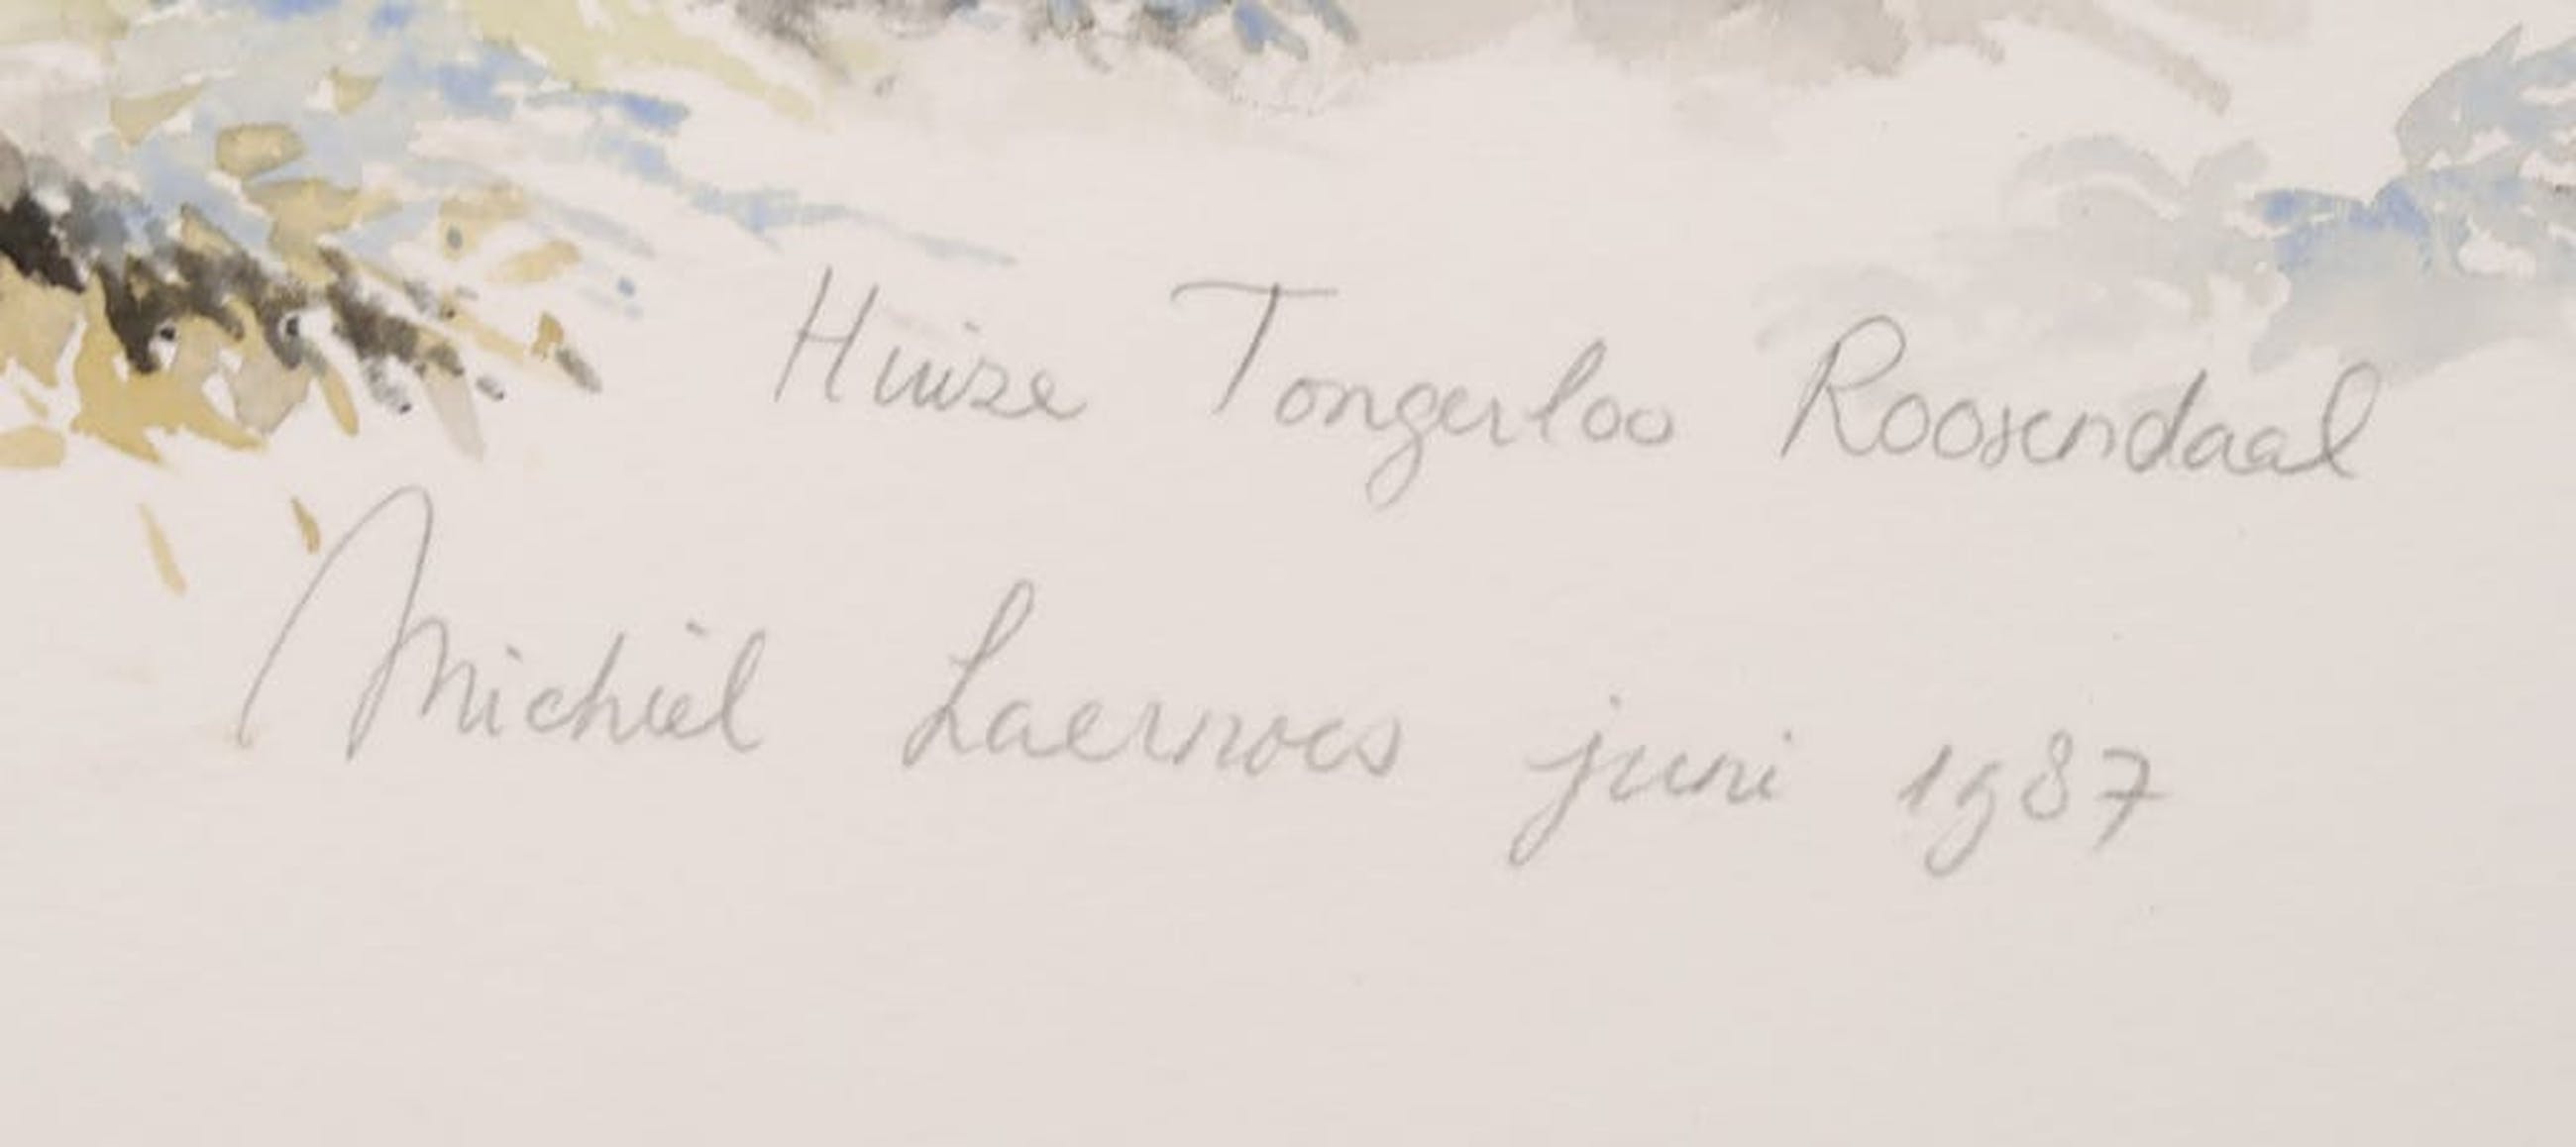 Huize Tongerloo Roosendaal
Michiel Laernoes juni 1987